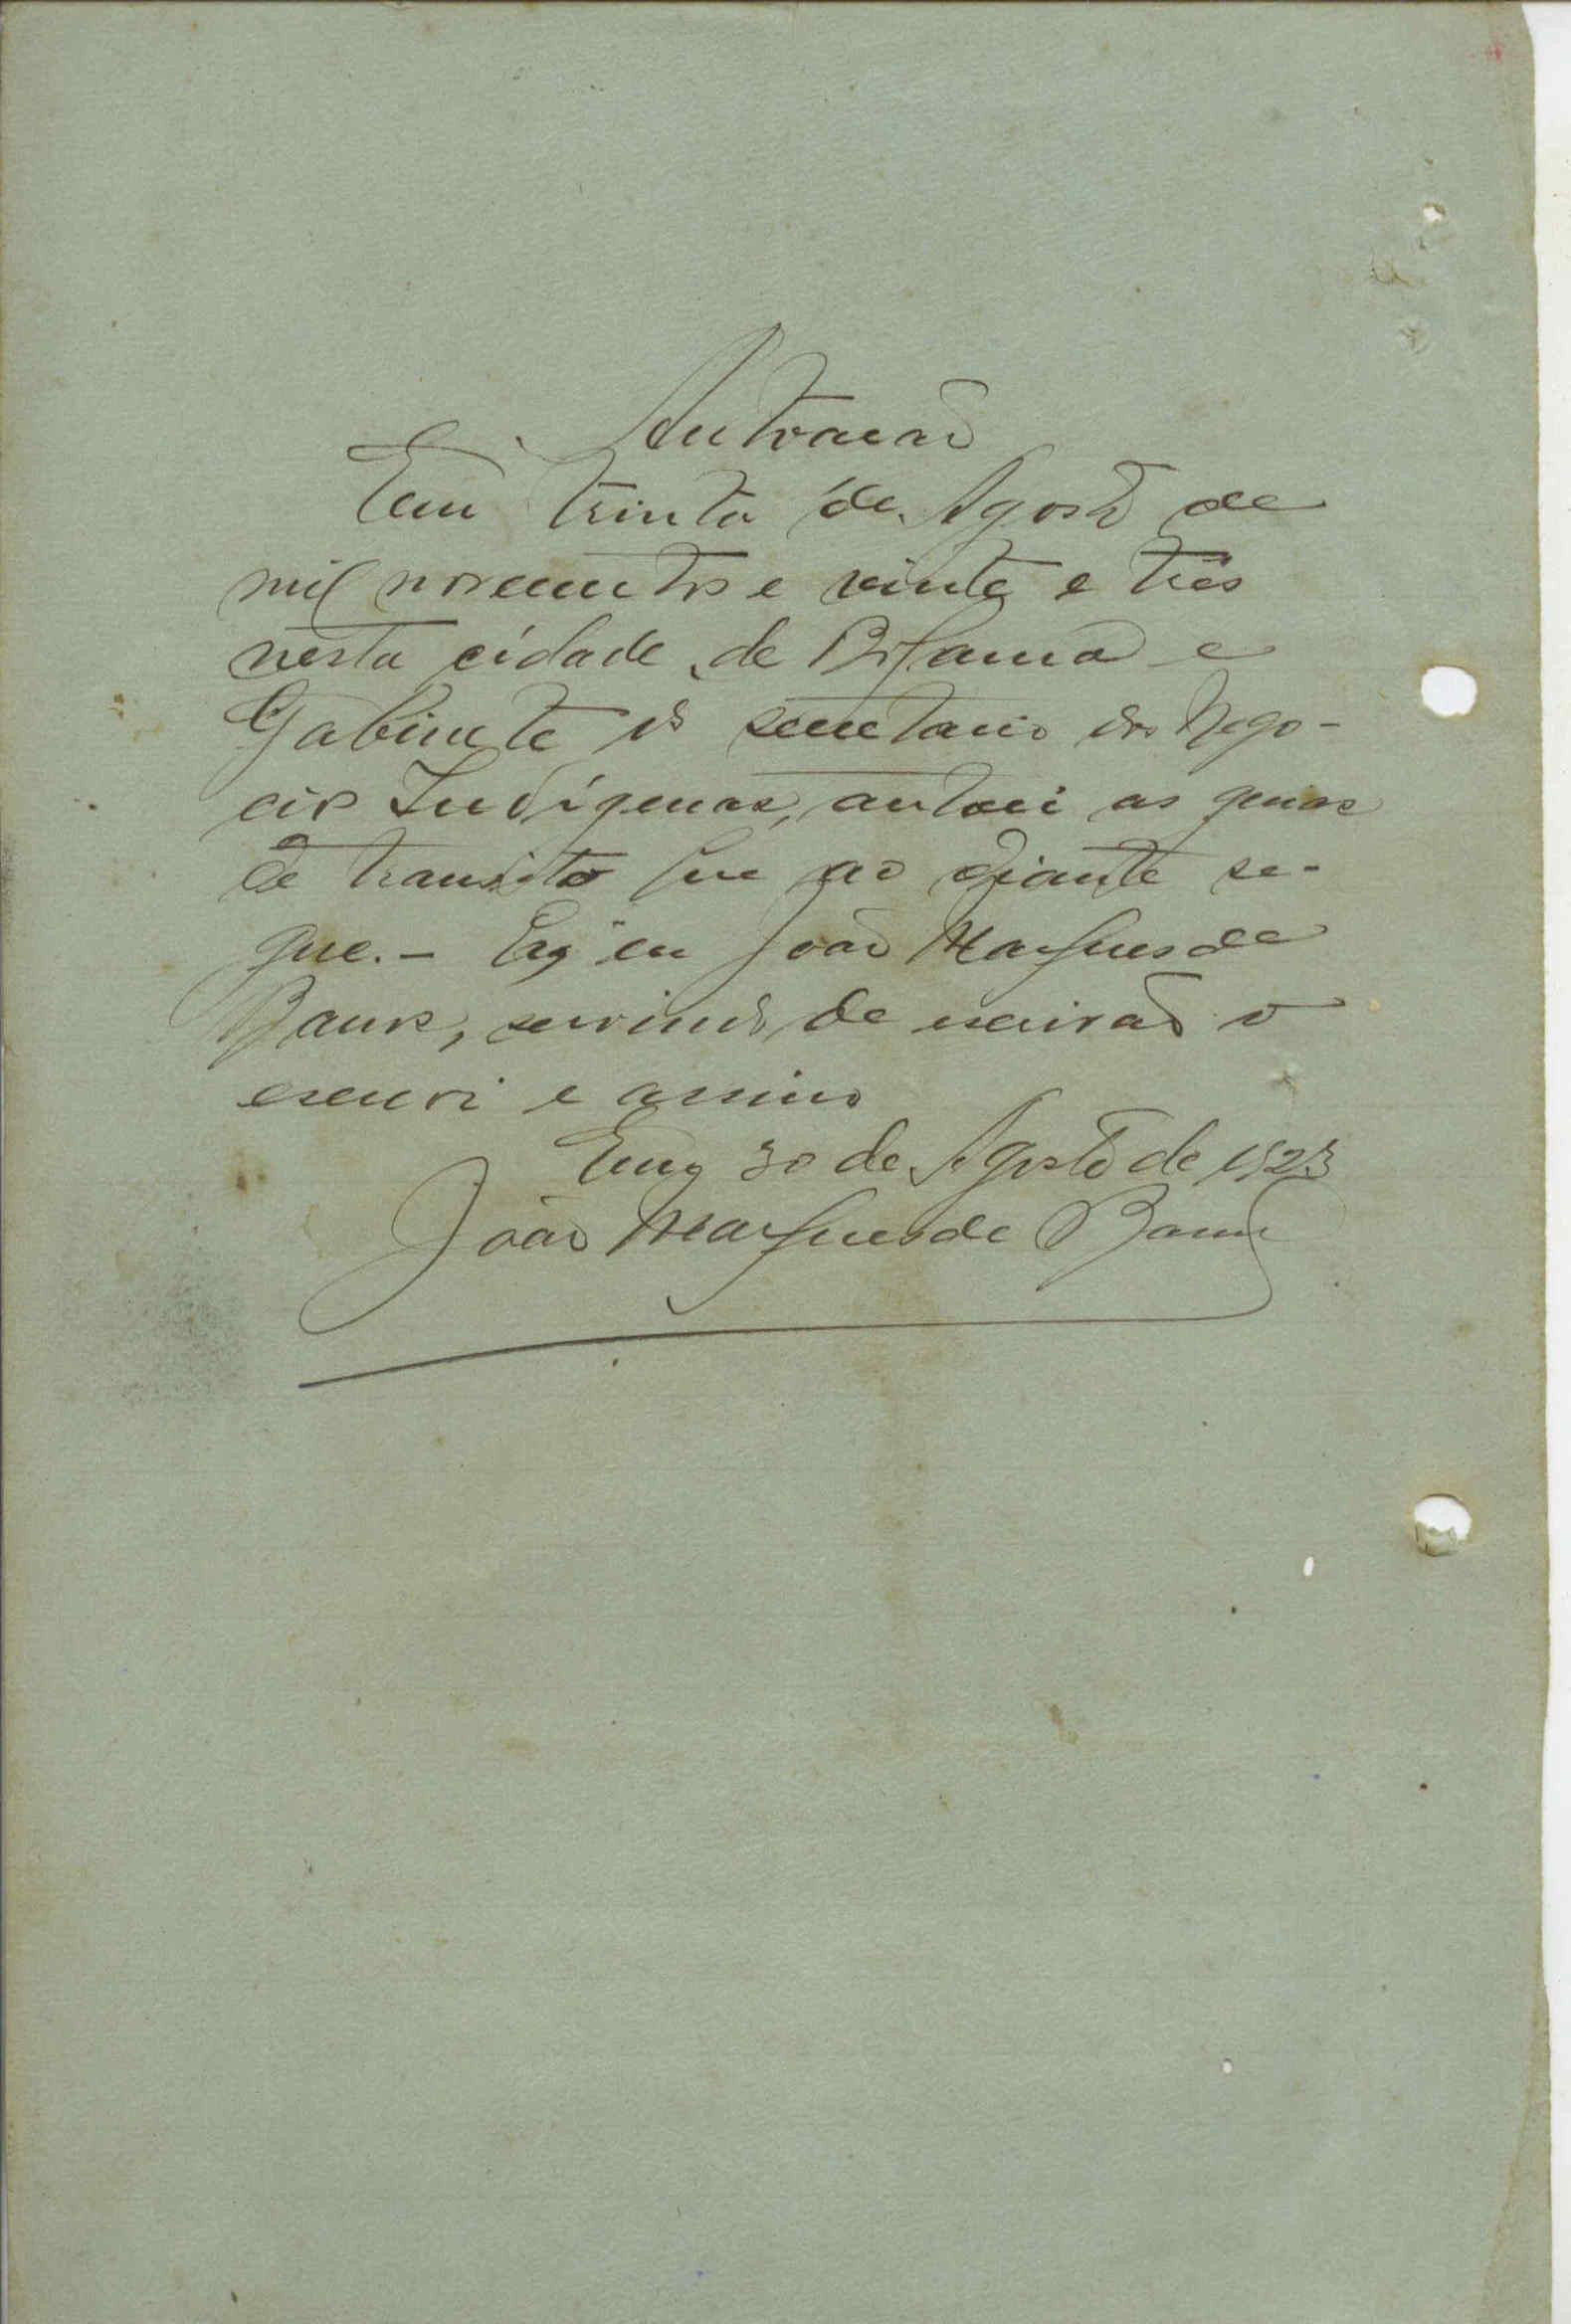 Autoacão
Em trinta de Agosto de
mil novecentos e vinte e três
nesta cidade de Bolama e
Gabinete do secretario dos Nego-
cios Indígenas, autoei as guias
de transito que ao diante se-
gue. – Eu João Marques de
Barros, servindo de escrivão o
escrevi e assino
Em 30 de Agosto de 1923
João Marques de Barros